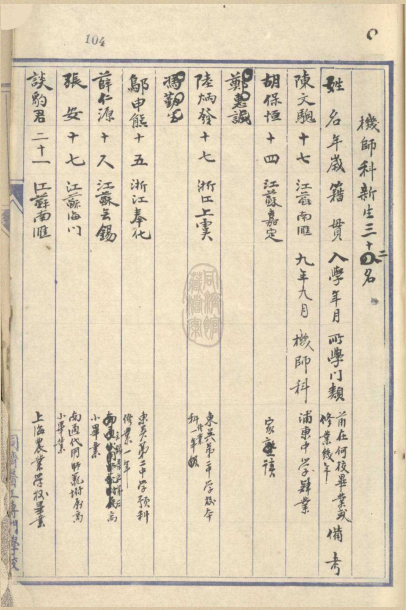 104
機師科新生三十二名
姓名 年歲 籍貫 入學年月 所學门類 前在何校畢業或修業幾年 備考
陳文騘 十七 江蘇南匯 九年九月 機師科 浦東中学肄業
胡保恒 十四 江蘇嘉定 家塾
鄭惠誠
陸炳發 十七 浙江上虞 東吳第二中学
馮
鄔申熊 十五 浙江奉化 東吳第二中学預科修業一年
薛仁源 十八 江蘇无錫 高小畢業
張安 十七 江蘇海门 南通代用師範附屬高小畢業
談豹君 二十一 江蘇南匯 上海農業學校畢業
同濟醫工專門學校